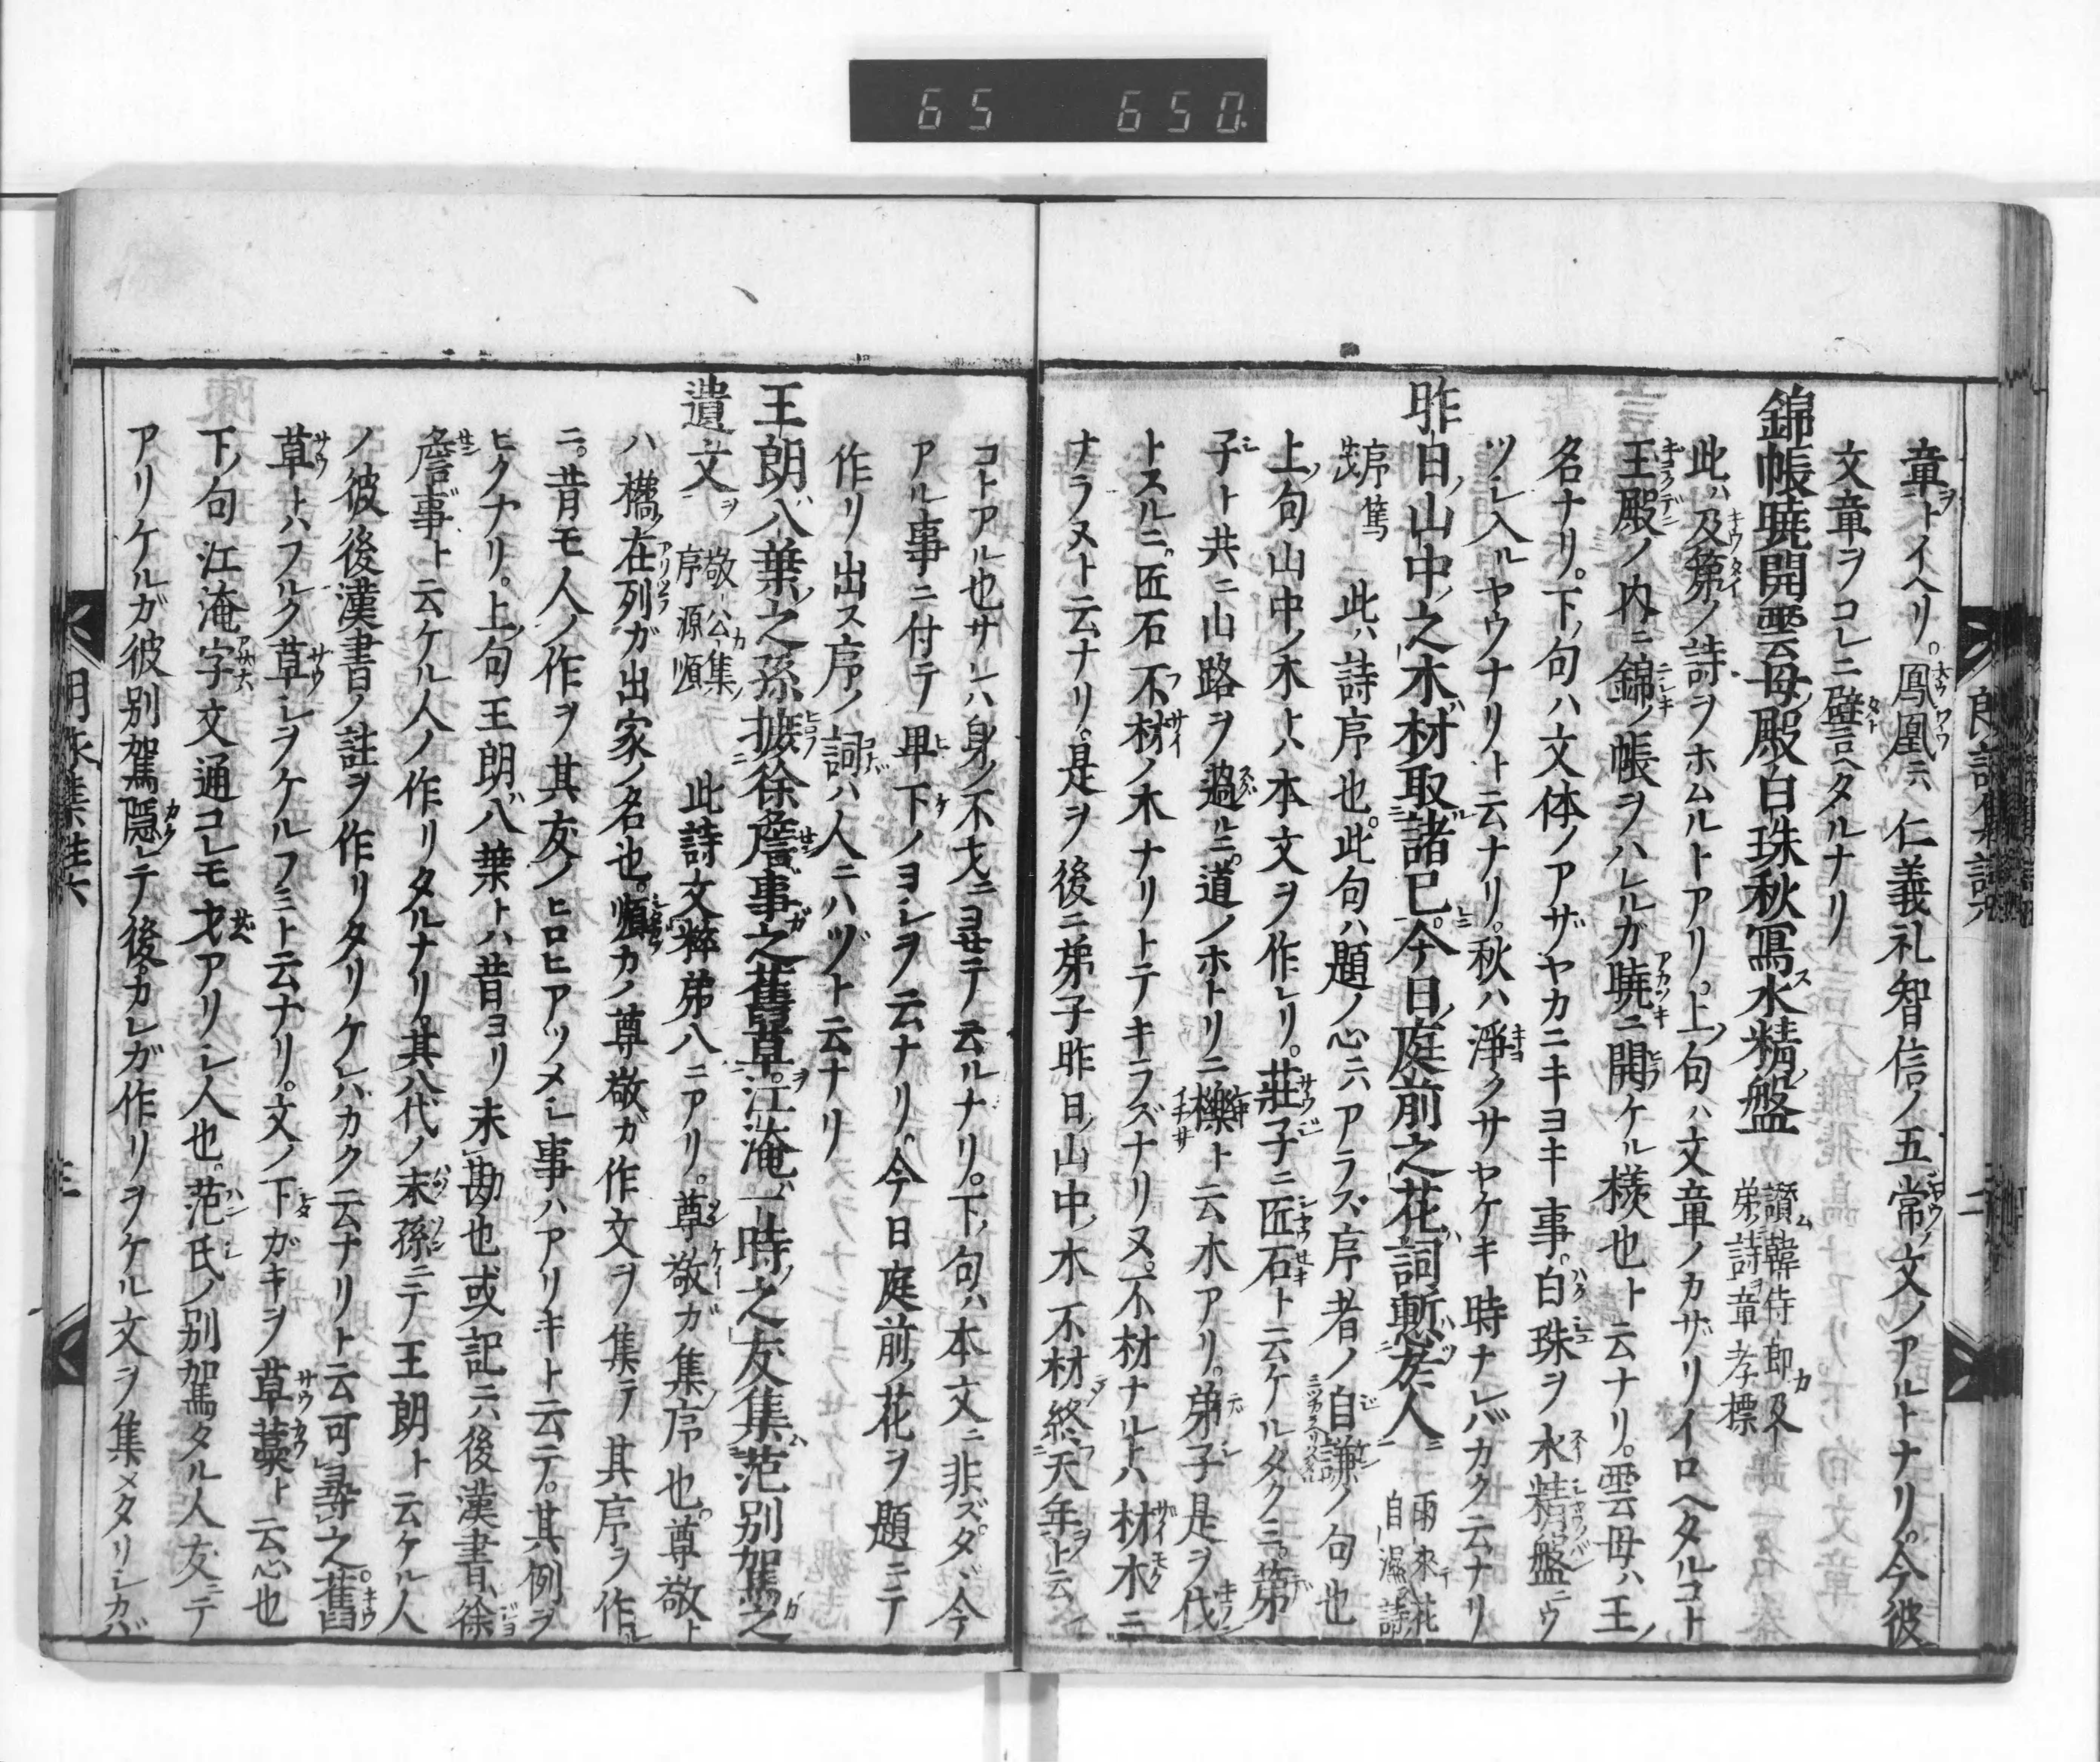 65 650
章トイヘリ。鳳凰ニハ仁義礼智信ノ五常ノ文ノアルトナリ。今彼
文章ヲコレニ譬ヘタルナリ
錦帳暁開雲母殿白珠秋寫水精盤 讃韓侍郎及第詩章孝標
此ハ及第ノ詩ヲホムルトアリ。上ノ句ハ文章ノカザリイロヘタルコト
王殿ノ内ニ錦ノ帳ヲハレルガ暁ニ開ケル様也ト云ナリ。雲母ハ王ノ
名ナリ。下ノ句ハ文体ノアザヤカニキヨキ事。白珠ヲ水精盤ニウ
ツシ入ルヤウナリト云ナリ。秋ハ浄クサヤケキ時ナレバカク云ナリ
昨日ノ山中之木材取諸已。今日ノ庭前之花詞慙於人 雨來花自濕詩
序篤茂 此ハ詩序也。此句ハ題ノ心ニハアラズ序者ノ自謙ノ句也
上ノ句山中ノ木トハ本文ヲ作レリ。荘子ニ匠石ト云ケルタクミ。第
子ト共ニ山路ヲ過ルニ。道ノホトリニ櫟ト云木アリ。弟子是ヲ伐ン
トスルニ。匠石不材ノ木ナリトテキラズナリヌ。不材ナルトハ材木ニ
ナラヌト云ナリ。是ヲ後ニ弟子昨日ノ山中ノ木不材終天年ト云
コトアル也サレハ身ノ不才ニヨセテ云ルナリ。下ノ句ハ本文ニ非ズタヾ今
アル事ニ付テ卑下ノヨシヲ云ナリ。今日庭前ノ花ヲ題ニテ
作リ出ス序ノ詞ハ人ニハヅト云ナリ
王朗八葉之孫摭徐詹事之舊草。江淹一時之友集范別駕之
遺文 敬公集序源順 此詩文粹第八ニアリ。尊敬ガ集ノ序也。尊敬ト
ハ橘ノ在列ガ出家ノ名也。順カノ尊敬ガ作文ヲ集テ其序ヲ作ル
ニ。昔モ人ノ作ヲ其友ノヒロヒアツメシ事ハアリキト云テ。其例ヲ
ヒクナリ。上ノ句王朗八葉トハ昔ヨリ未勘也或記ニハ後漢書ノ徐
詹事ト云ケル人ノ作リタルナリ。其八代ノ末孫ニテ王朗ト云ケル人
ノ彼後漢書ノ註ヲ作リタリケレバカク云ナリト云可尋之舊
草トハフルク草シヲケルフミト云ナリ。文ノ下ガキヲ草藁ト云心也
下ノ句江淹字文通コレモ才アリシ人也。范氏ノ別駕タル人友ニテ
アリケルガ彼別駕隠レテ後カレガ作リヲケル文ヲ集メタリシカバ